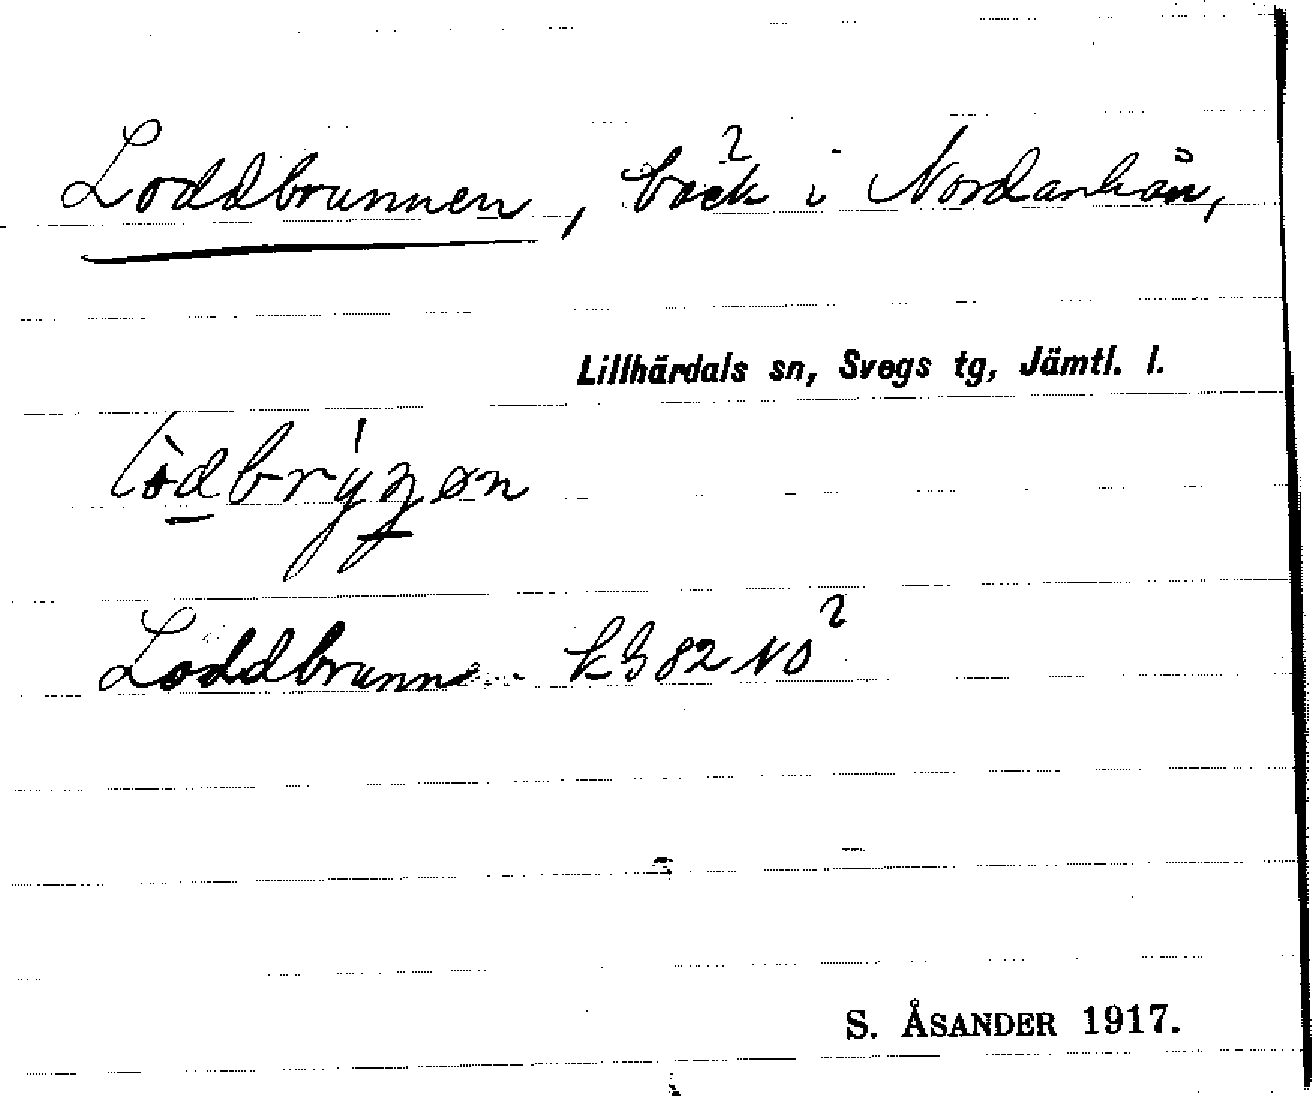 Loddbrunnen, bäck i Nordanhån,
Lillhärdals sn, Svegs tg, Jämtl. l.
Loddbrunn KB 82 NO²
S. ÅSANDER 1917.